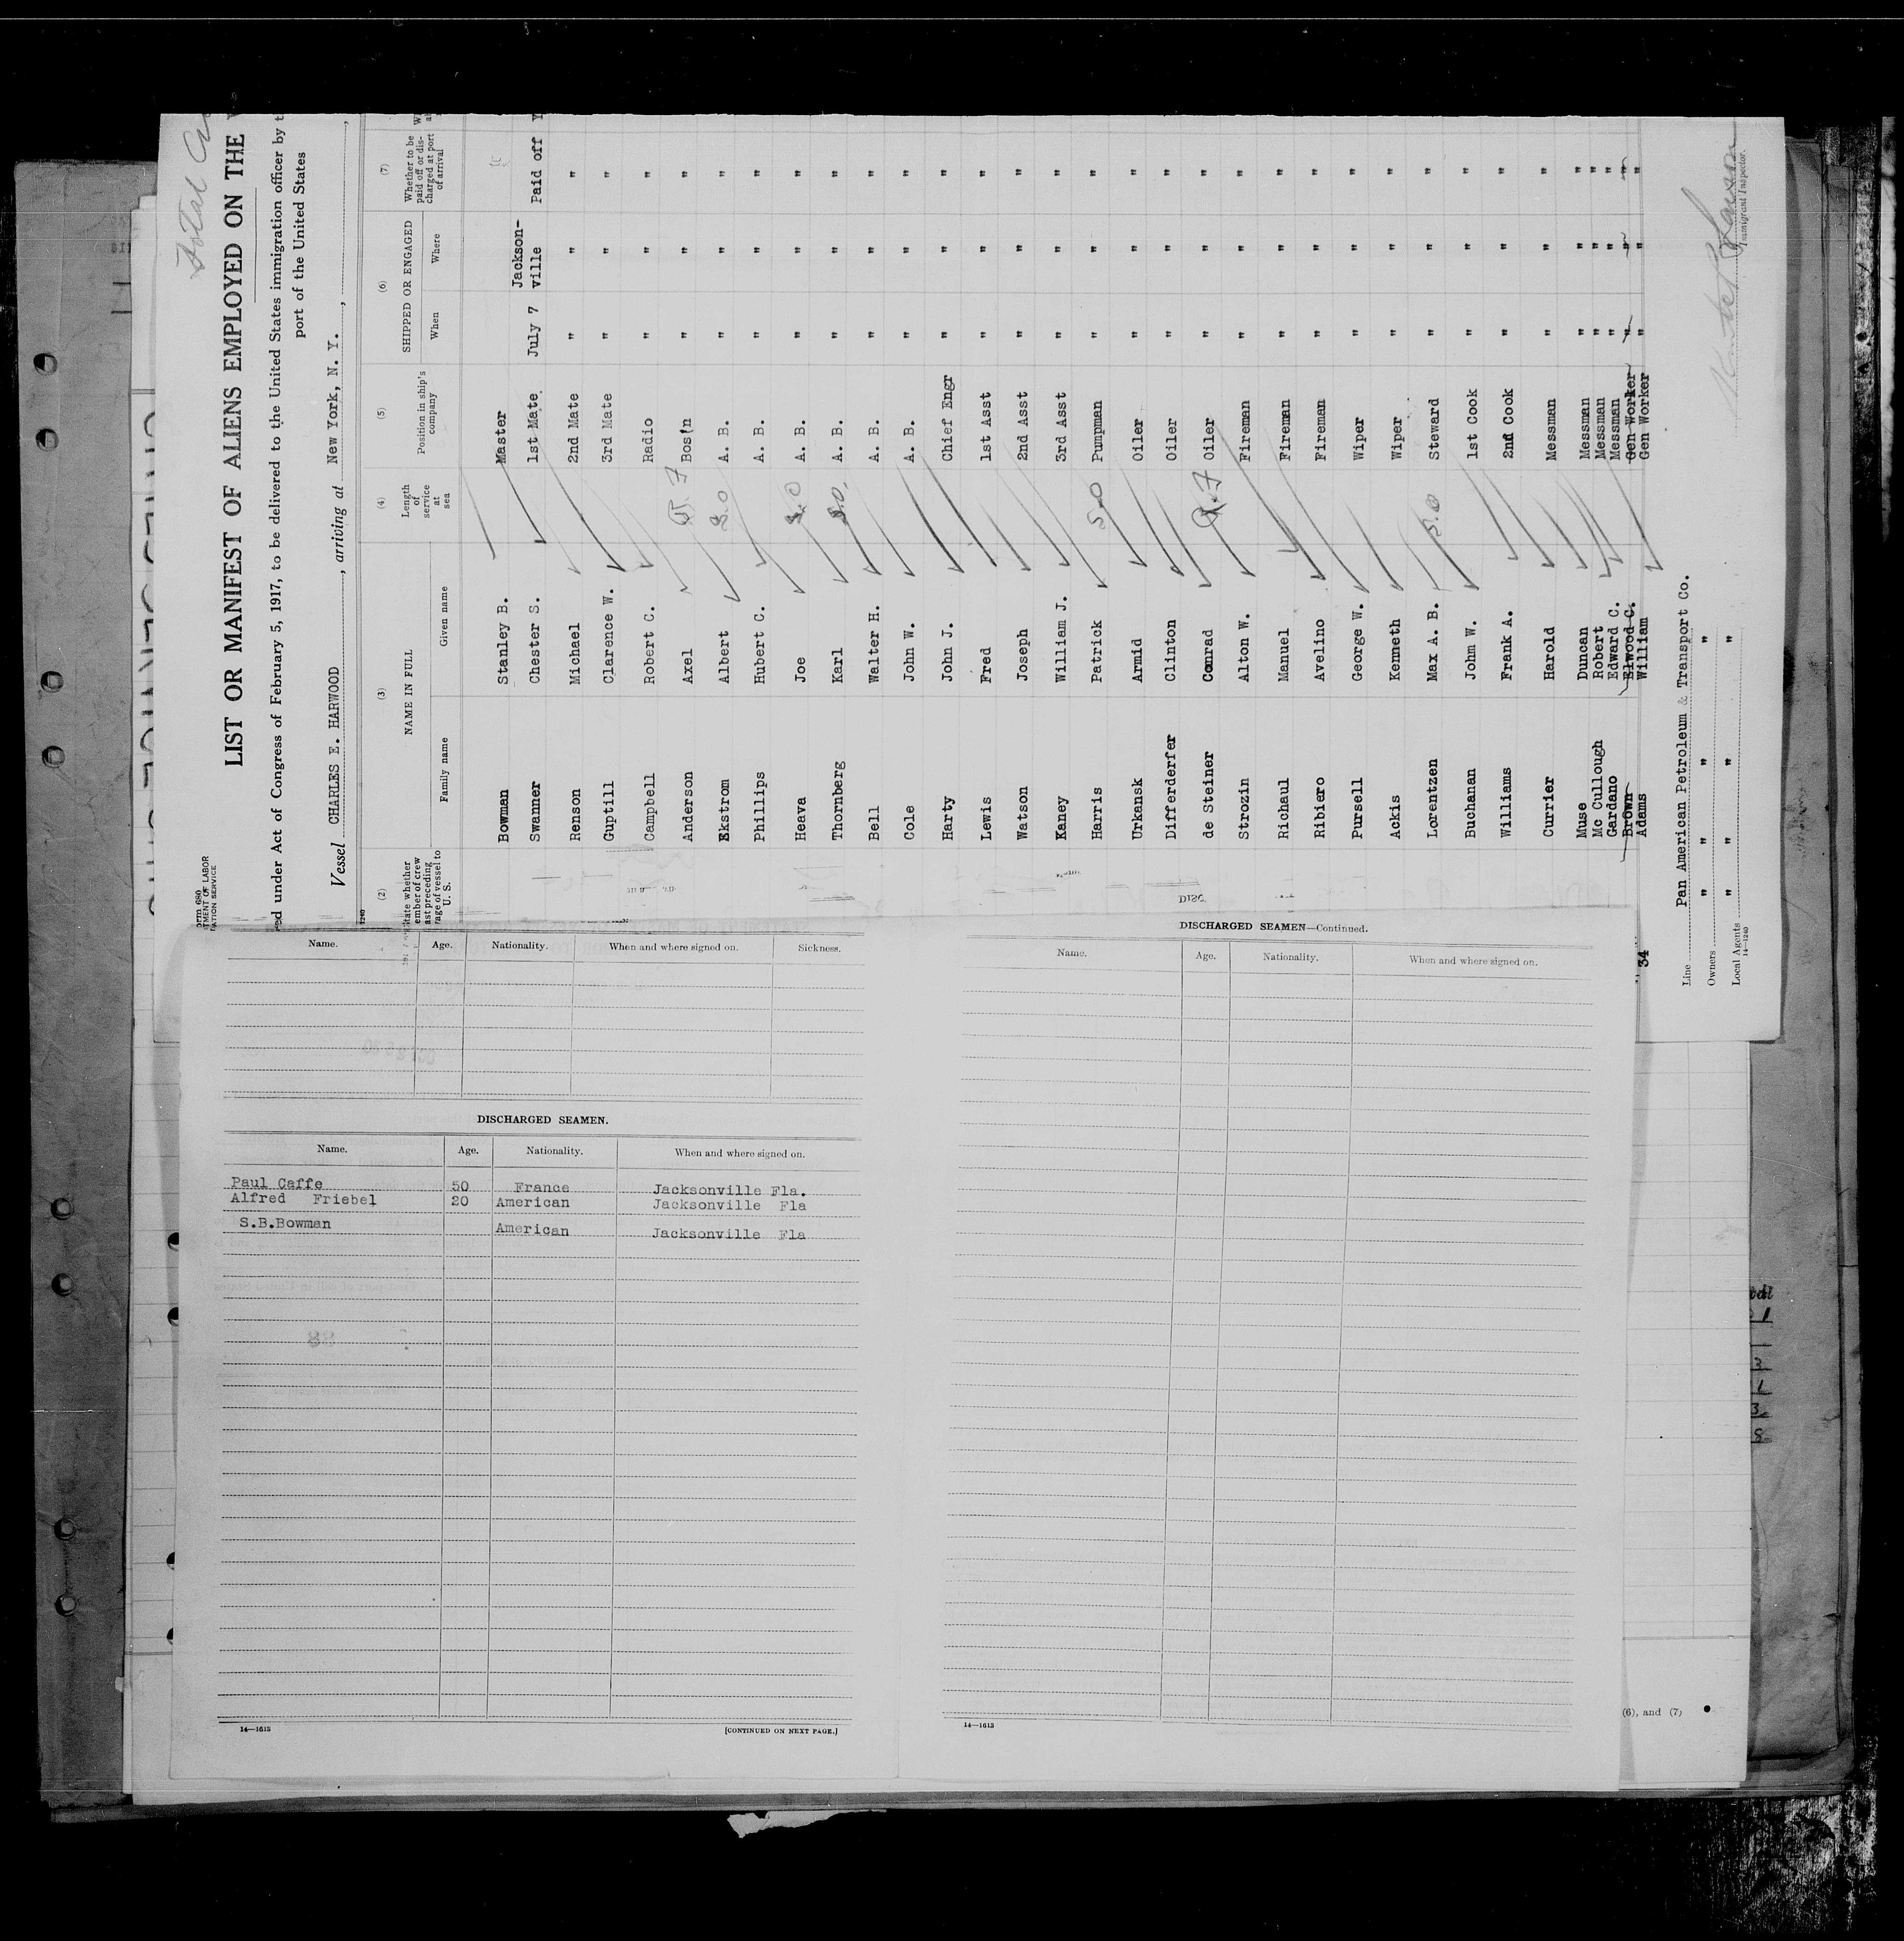 LIST OR MANIFEST OF ALIENS EMPLOYED ON THE
ed under Act of Congress of February 5, 1917, to be delivered to the United States immigration officer by t
port of the United States
Vessel CHARLES E. HARWOOD, arriving at New York, N. Y.,
(2) (3) (4) (5) (6) (7)
NAME IN FULL Length of service at sea Position in ship's company SHIPPED OR ENGAGED Whether to be paid off or discharged at port of arrival
Family name Given name When Where
Bowman Stanley B. Master
Swanner Chester S. 1st Mate July 7 Jackson-ville Paid off
Renson Michael 2nd Mate " " "
Guptill Clarence W. 3rd Mate " " "
Campbell Robert C. Radio " " "
Anderson Axel Bos'n " " "
Ekstrom Albert A. B. " " "
Phillips Hubert C. A. B. " " "
Heava Joe A. B. " " "
Thornberg Karl A. B. " " "
Bell Walter H. A. B. " " "
Cole John W. A. B. " " "
Harty John J. Chief Engr " " "
Lewis Fred 1st Asst " " "
Watson Joseph 2nd Asst " " "
Kaney William J. 3rd Asst " " "
Harris Patrick S.O Pumpman " " "
Urkansk Armid Oiler " " "
Differderfer Clinton Oiler " " "
de Steiner Conrad Oiler " " "
Strozin Alton W. Fireman " " "
Richaul Manuel Fireman " " "
Ribiero Avelino Fireman " " "
Pursell George W. Wiper " " "
Ackis Kenneth Wiper " " "
Lorentzen Max A. B. S.O Steward " " "
Buchanan Johm W. 1st Cook " " "
Williams Frank A. 2nd Cook " " "
Currier Harold Messman " " "
Muse Duncan Messman " " "
Mc Cullough Robert Messman " " "
Gardano Edward C. Messman " " "
Brown Elwood C. Gen Worker " " "
Adams William Gen Worker " " "
34
Line Pan American Petroleum & Transport Co.
Owners " " " "
Local Agents " " " "
14—1240
Immigrant Inspector.
Name. Age. Nationality. When and where signed on. Sickness.
DISCHARGED SEAMEN.
Name. Age. Nationality. When and where signed on.
Paul Caffe 50 France Jacksonville Fla.
Alfred Friebel 20 American Jacksonville Fla
S.B.Bowman American Jacksonville Fla
14—1613 [CONTINUED ON NEXT PAGE.]
DISCHARGED SEAMEN—Continued.
Name. Age. Nationality. When and where signed on.
14—1613
(6), and (7)